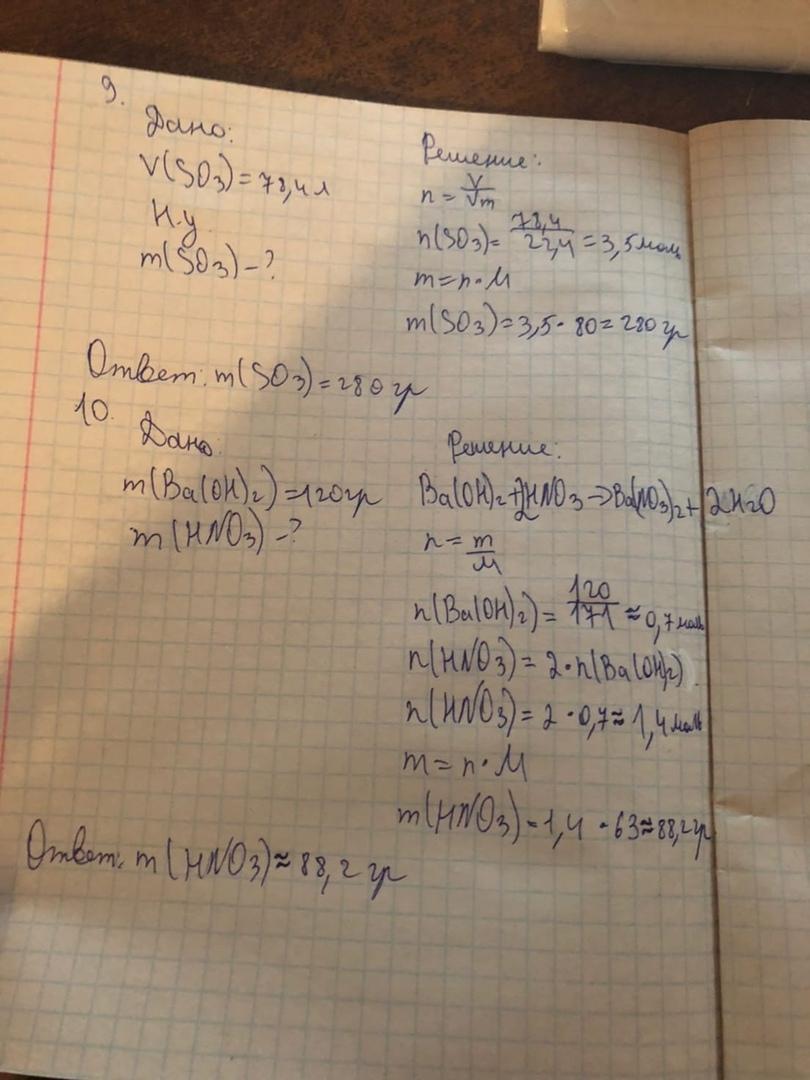 9.
Дано:
V(SO3)=78,4л
Н.у.
m(SO3)-?
Решение:
n = V/Vm
n(SO3)= 78,4/22,4 = 3,5моль
m=n·M
m(SO3)=3,5·80=280гр
Ответ: m(SO3)=280гр
10.
Дано:
m(Ba(OH)2)=120гр
m(HNO3)-?
Решение:
Ba(OH)2+2HNO3→Ba(NO3)2+2H2O
n = m/M
n(Ba(OH)2)= 120/171 ≈0,7моль
n(HNO3)=2·n(Ba(OH)2)
n(HNO3)=2·0,7≈1,4моль
m=n·M
m(HNO3)=1,4·63≈88,2гр
Ответ: m(HNO3)≈88,2гр